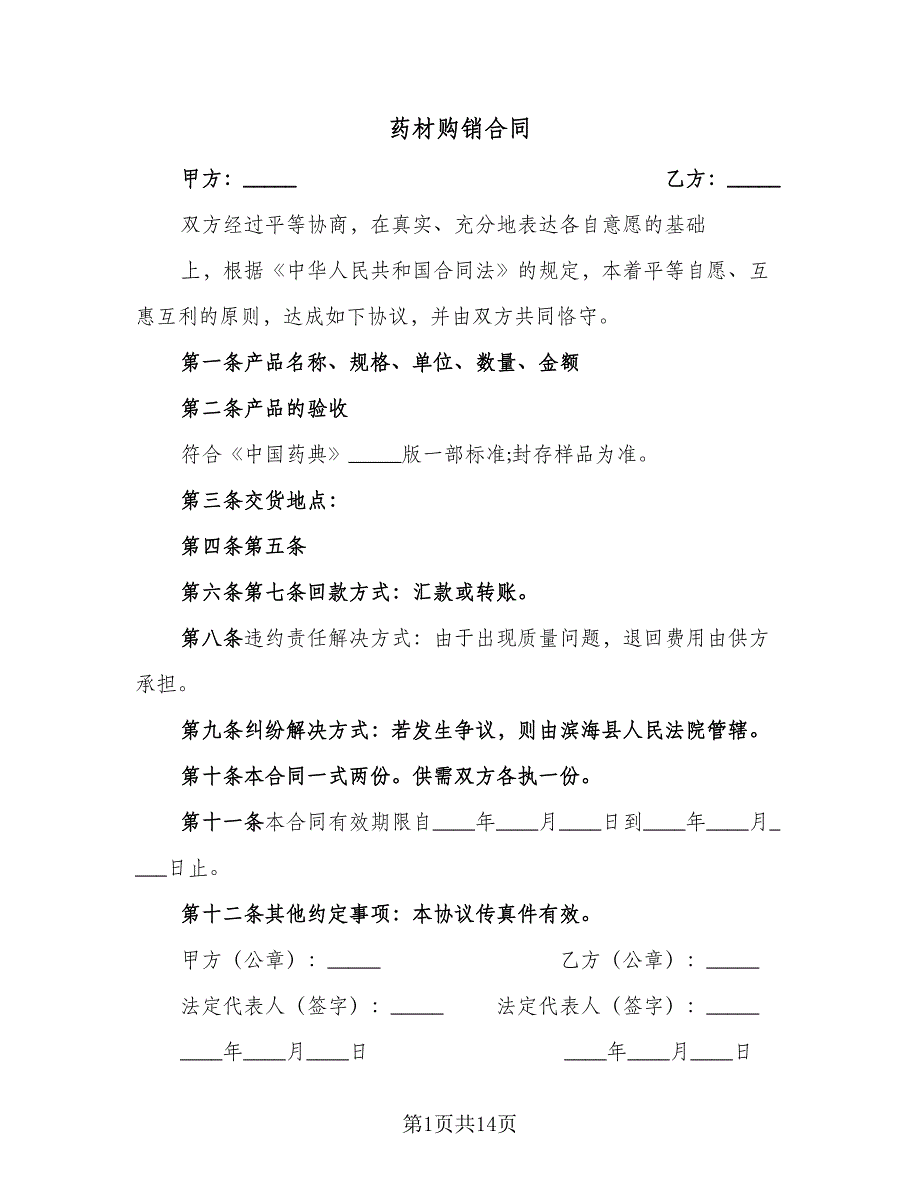 药材购销合同
甲方：_____ 乙方：_____
双方经过平等协商，在真实、充分地表达各自意愿的基础
上，根据《中华人民共和国合同法》的规定，本着平等自愿、互
惠互利的原则，达成如下协议，并由双方共同恪守。
第一条产品名称、规格、单位、数量、金额
第二条产品的验收
符合《中国药典》_____版一部标准;封存样品为准。
第三条交货地点：
第四条第五条
第六条第七条回款方式：汇款或转账。
第八条违约责任解决方式：由于出现质量问题，退回费用由供方
承担。
第九条纠纷解决方式：若发生争议，则由滨海县人民法院管辖。
第十条本合同一式两份。供需双方各执一份。
第十一条本合同有效期限自____年____月____日到____年____月_
___日止。
第十二条其他约定事项：本协议传真件有效。
甲方（公章）：_____ 乙方（公章）：_____
法定代表人（签字）：_____ 法定代表人（签字）：_____
____年____月____日 ____年____月____日
第1页共14页